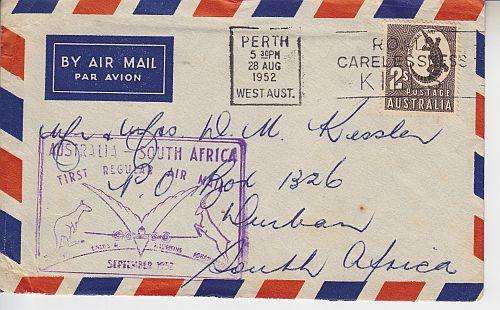 BY AIR MAIL
PAR AVION
PERTH
5 30PM
28 AUG
1952
WEST AUST.
ROAD
CARELESSNESS
2S
POSTAGE
AUSTRALIA
Mr & Mrs. D. M. Kessler
P.O Box 1326
Durban
South Africa
AUSTRALIA SOUTH AFRICA
FIRST REGULAR AIR
SEPTEMBER 1952